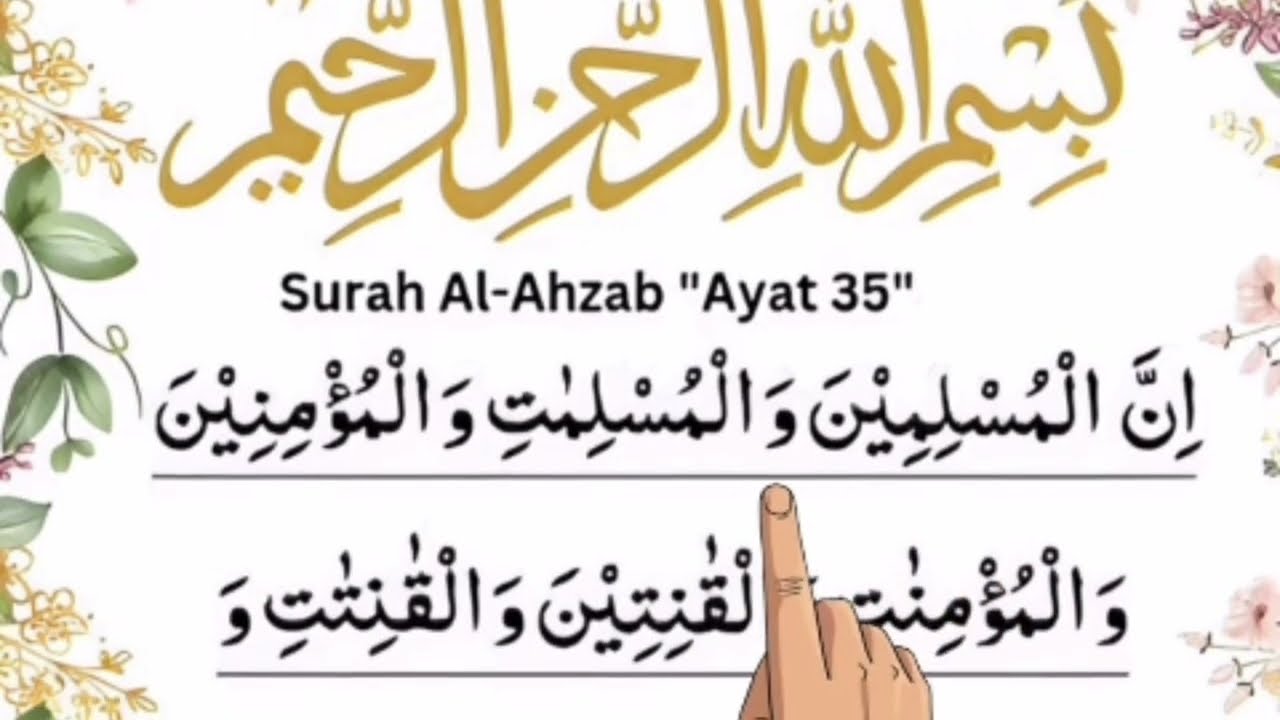 بِسْمِ اللهِ الرَّحْمٰنِ الرَّحِيْمِ
Surah Al-Ahzab "Ayat 35"
اِنَّ الْمُسْلِمِيْنَ وَالْمُسْلِمٰتِ وَالْمُؤْمِنِيْنَ
وَالْمُؤْمِنٰتِ لْقٰنِتِيْنَ وَالْقٰنِتٰتِ وَ